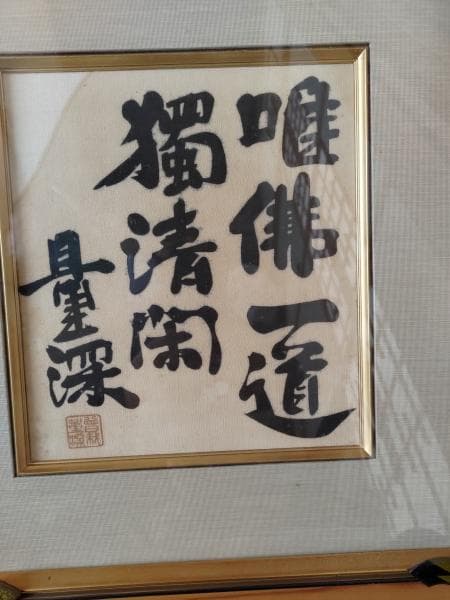 唯佛一道
獨清閑
量深